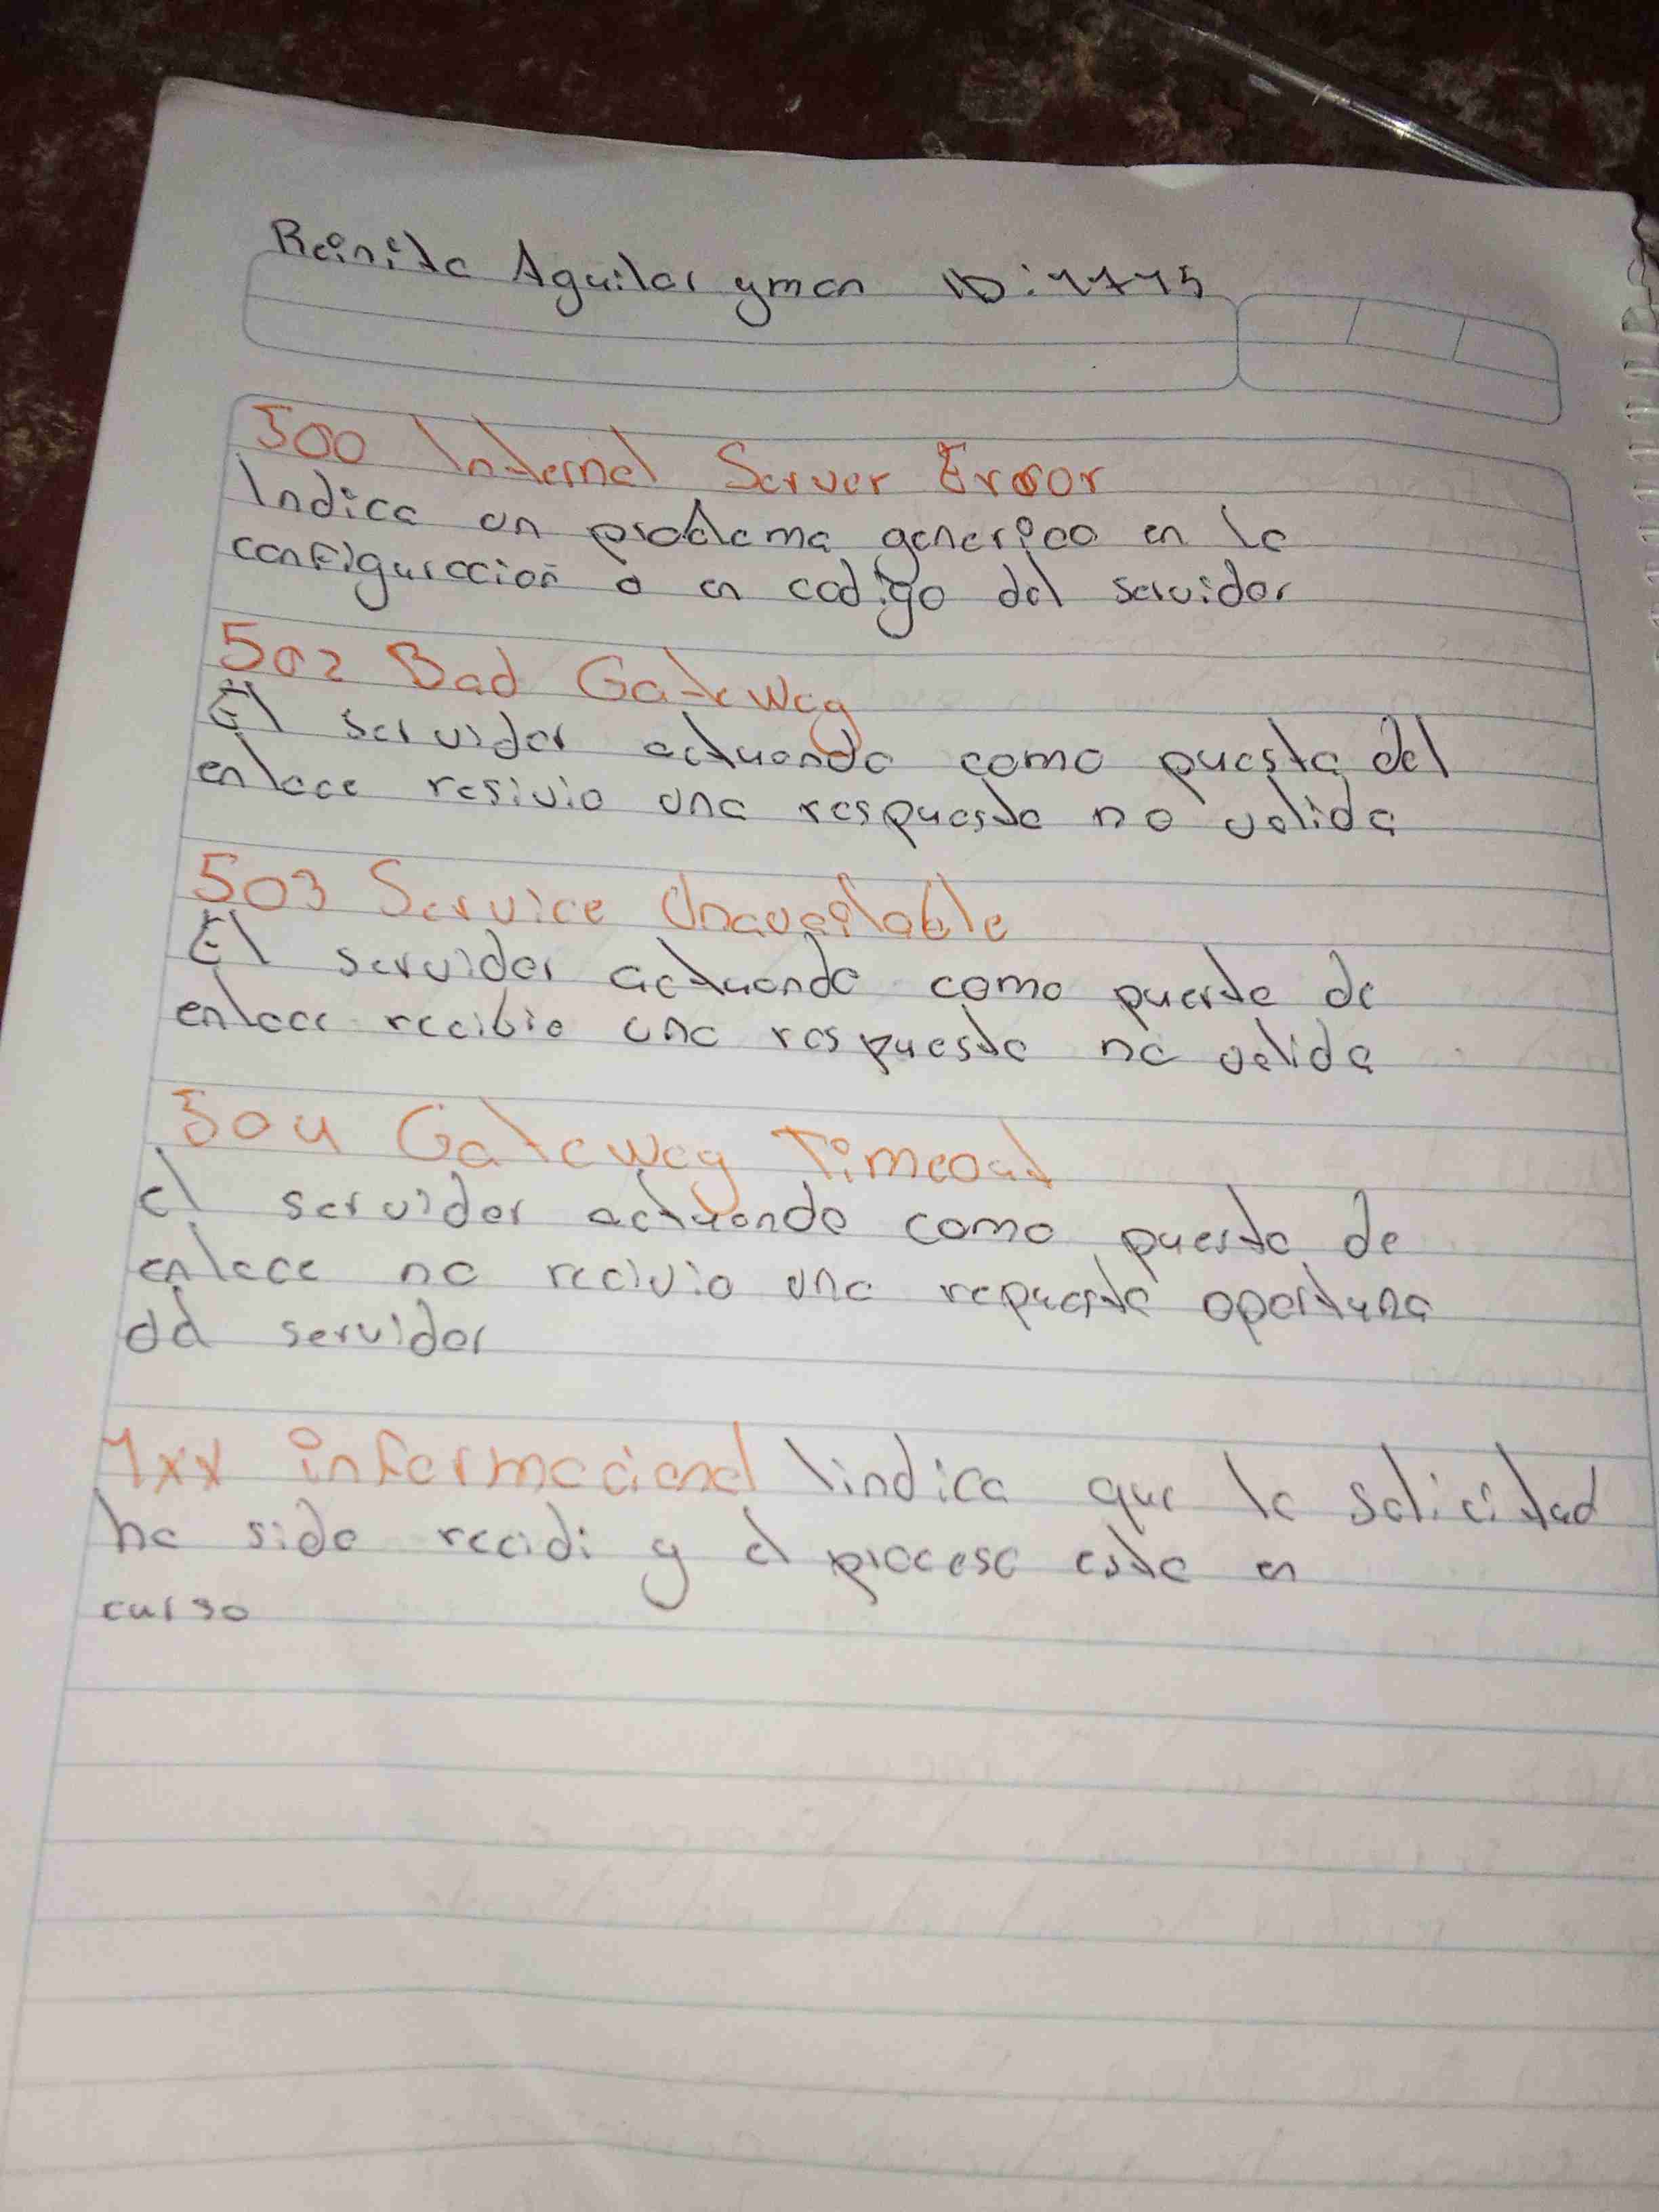 Reinita Aguilar yman ID: 1775
500 Internal Server Error
Indica un problema generico en la
configuraccion o en codigo del servidor
502 Bad Gateway
El servidor actuando como puesta del
enlace resivio una respuesta no valida
503 Service Unavailable
El servidor actuando como puerta de
enlace recibio una respuesta no valida
504 Gateway Timeout
el servidor actuando como puerta de
enlace no recivio una repuesta oportuna
del servidor
1xx informacional indica que la solicitud
ha sido recidi y el proceso esta en
curso